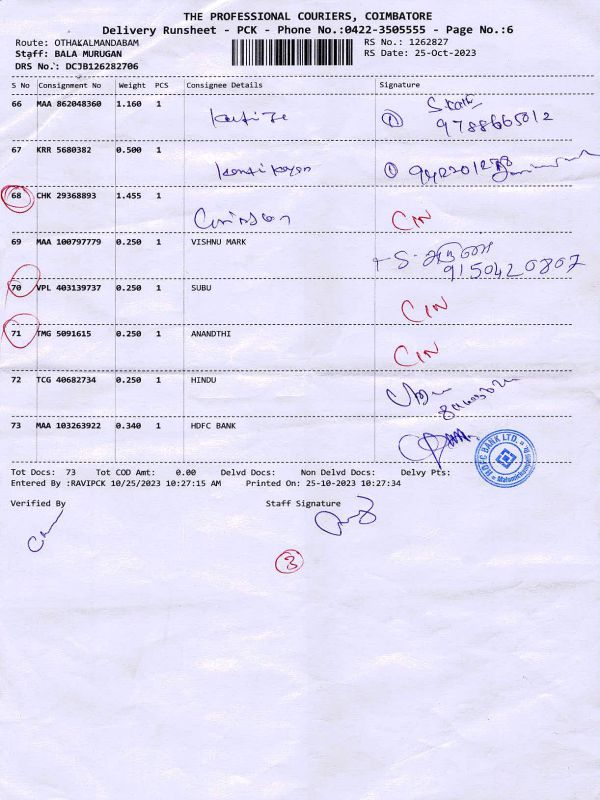 THE PROFESSIONAL COURIERS, COIMBATORE
Delivery Runsheet - PCK - Phone No.:0422-3505555 - Page No.:6
Route: OTHAKALMANDABAM RS No.: 1262827
Staff: BALA MURUGAN RS Date: 25-Oct-2023
DRS No.: DCJB126282706
S No Consignment No Weight PCS Consignee Details Signature
66 MAA 862048360 1.160 1
9788665012
67 KRR 5680382 0.500 1
68 CHK 29368893 1.455 1
CIN
69 MAA 100797779 0.250 1 VISHNU MARK
9150420807
70 VPL 403139737 0.250 1 SUBU
CIN
71 TMG 5091615 0.250 1 ANANDTHI
CIN
72 TCG 40682734 0.250 1 HINDU
73 MAA 103263922 0.340 1 HDFC BANK
HDFC BANK LTD.
Tot Docs: 73 Tot COD Amt: 0.00 Delvd Docs: Non Delvd Docs: Delvy Pts:
Entered By :RAVIPCK 10/25/2023 10:27:15 AM Printed On: 25-10-2023 10:27:34
Verified By Staff Signature
3